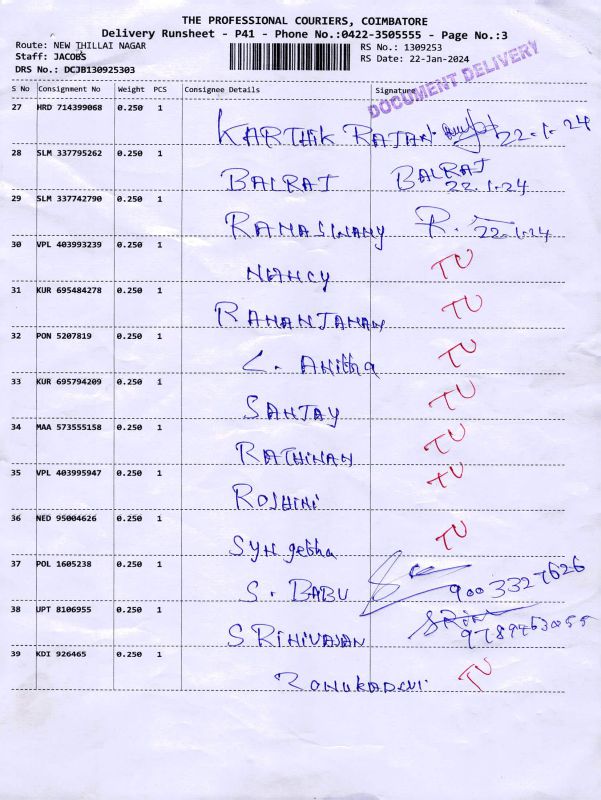 THE PROFESSIONAL COURIERS, COIMBATORE
Delivery Runsheet - P41 - Phone No.:0422-3505555 - Page No.:3
Route: NEW THILLAI NAGAR
RS No.: 1309253
Staff: JACOBS
RS Date: 22-Jan-2024
DRS No.: DCJB130925303
DOCUMENT DELIVERY
S No Consignment No Weight PCS Consignee Details Signature
27 HRD 714399068 0.250 1
KARTHIK RAJAN 22-1-24
28 SLM 337795262 0.250 1
BALRAJ BALRAJ
22.1.24
29 SLM 337742790 0.250 1
RAMASWAMY R. 22-1-24
30 VPL 403993239 0.250 1
NANCY TU
31 KUR 695484278 0.250 1
RAMANJAMAN TU
32 PON 5207819 0.250 1
C. Anitha TU
33 KUR 695794209 0.250 1
SANJAY TU
34 MAA 573555158 0.250 1
RATHINAN TU
35 VPL 403995947 0.250 1
ROSHINI TU
36 NED 95004626 0.250 1
TU
37 POL 1605238 0.250 1
S. BABU 9003327626
38 UPT 8106955 0.250 1
SRINIVASAN SRINI
9789453055
39 KDI 926465 0.250 1
TU